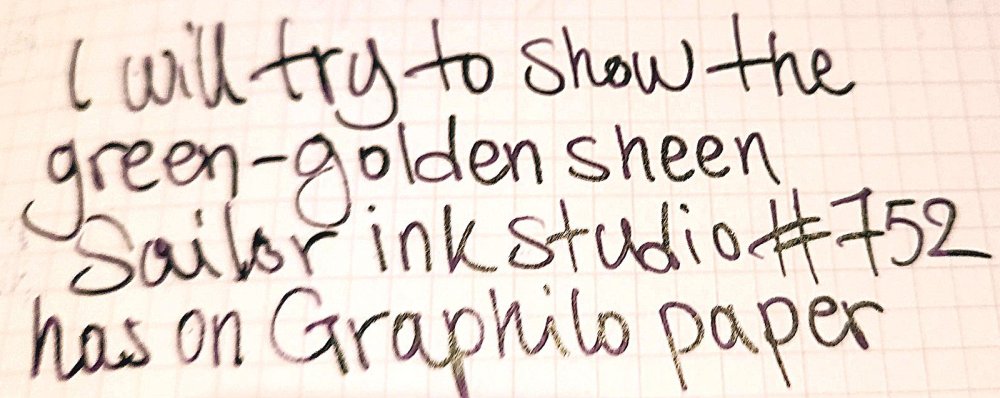 I will try to show the
green-golden sheen
Sailor ink studio #752
has on Graphilo paper